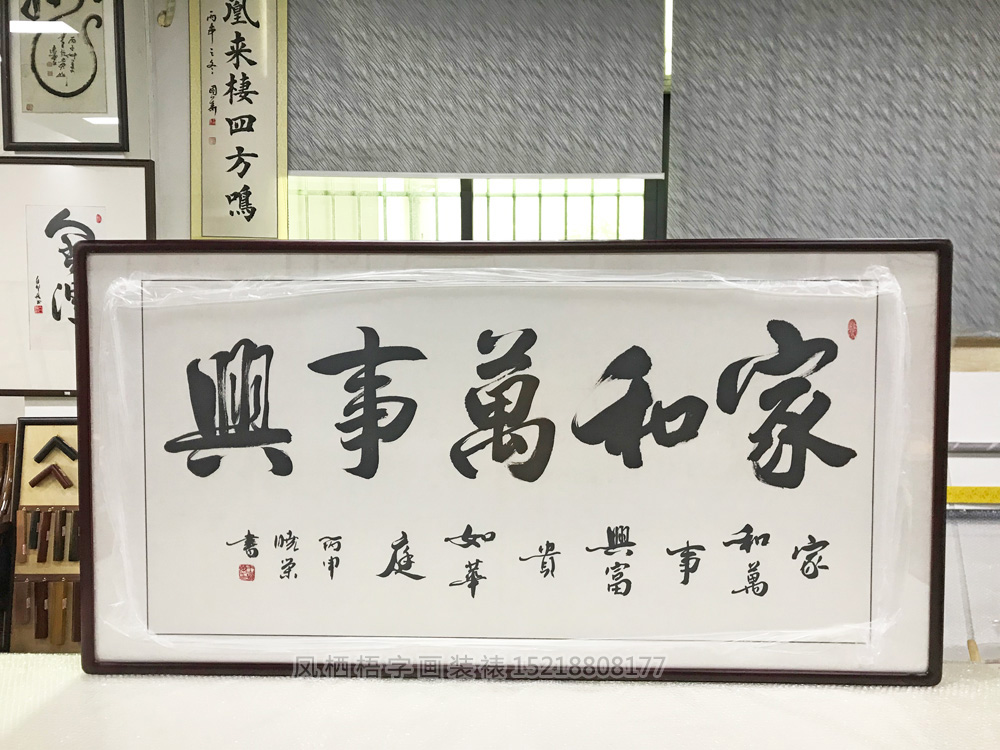 凰来棲四方鳴
家和萬事興
家和萬事興富貴如華庭
丙申
曉榮
書
凤栖梧字画装裱 15218808177